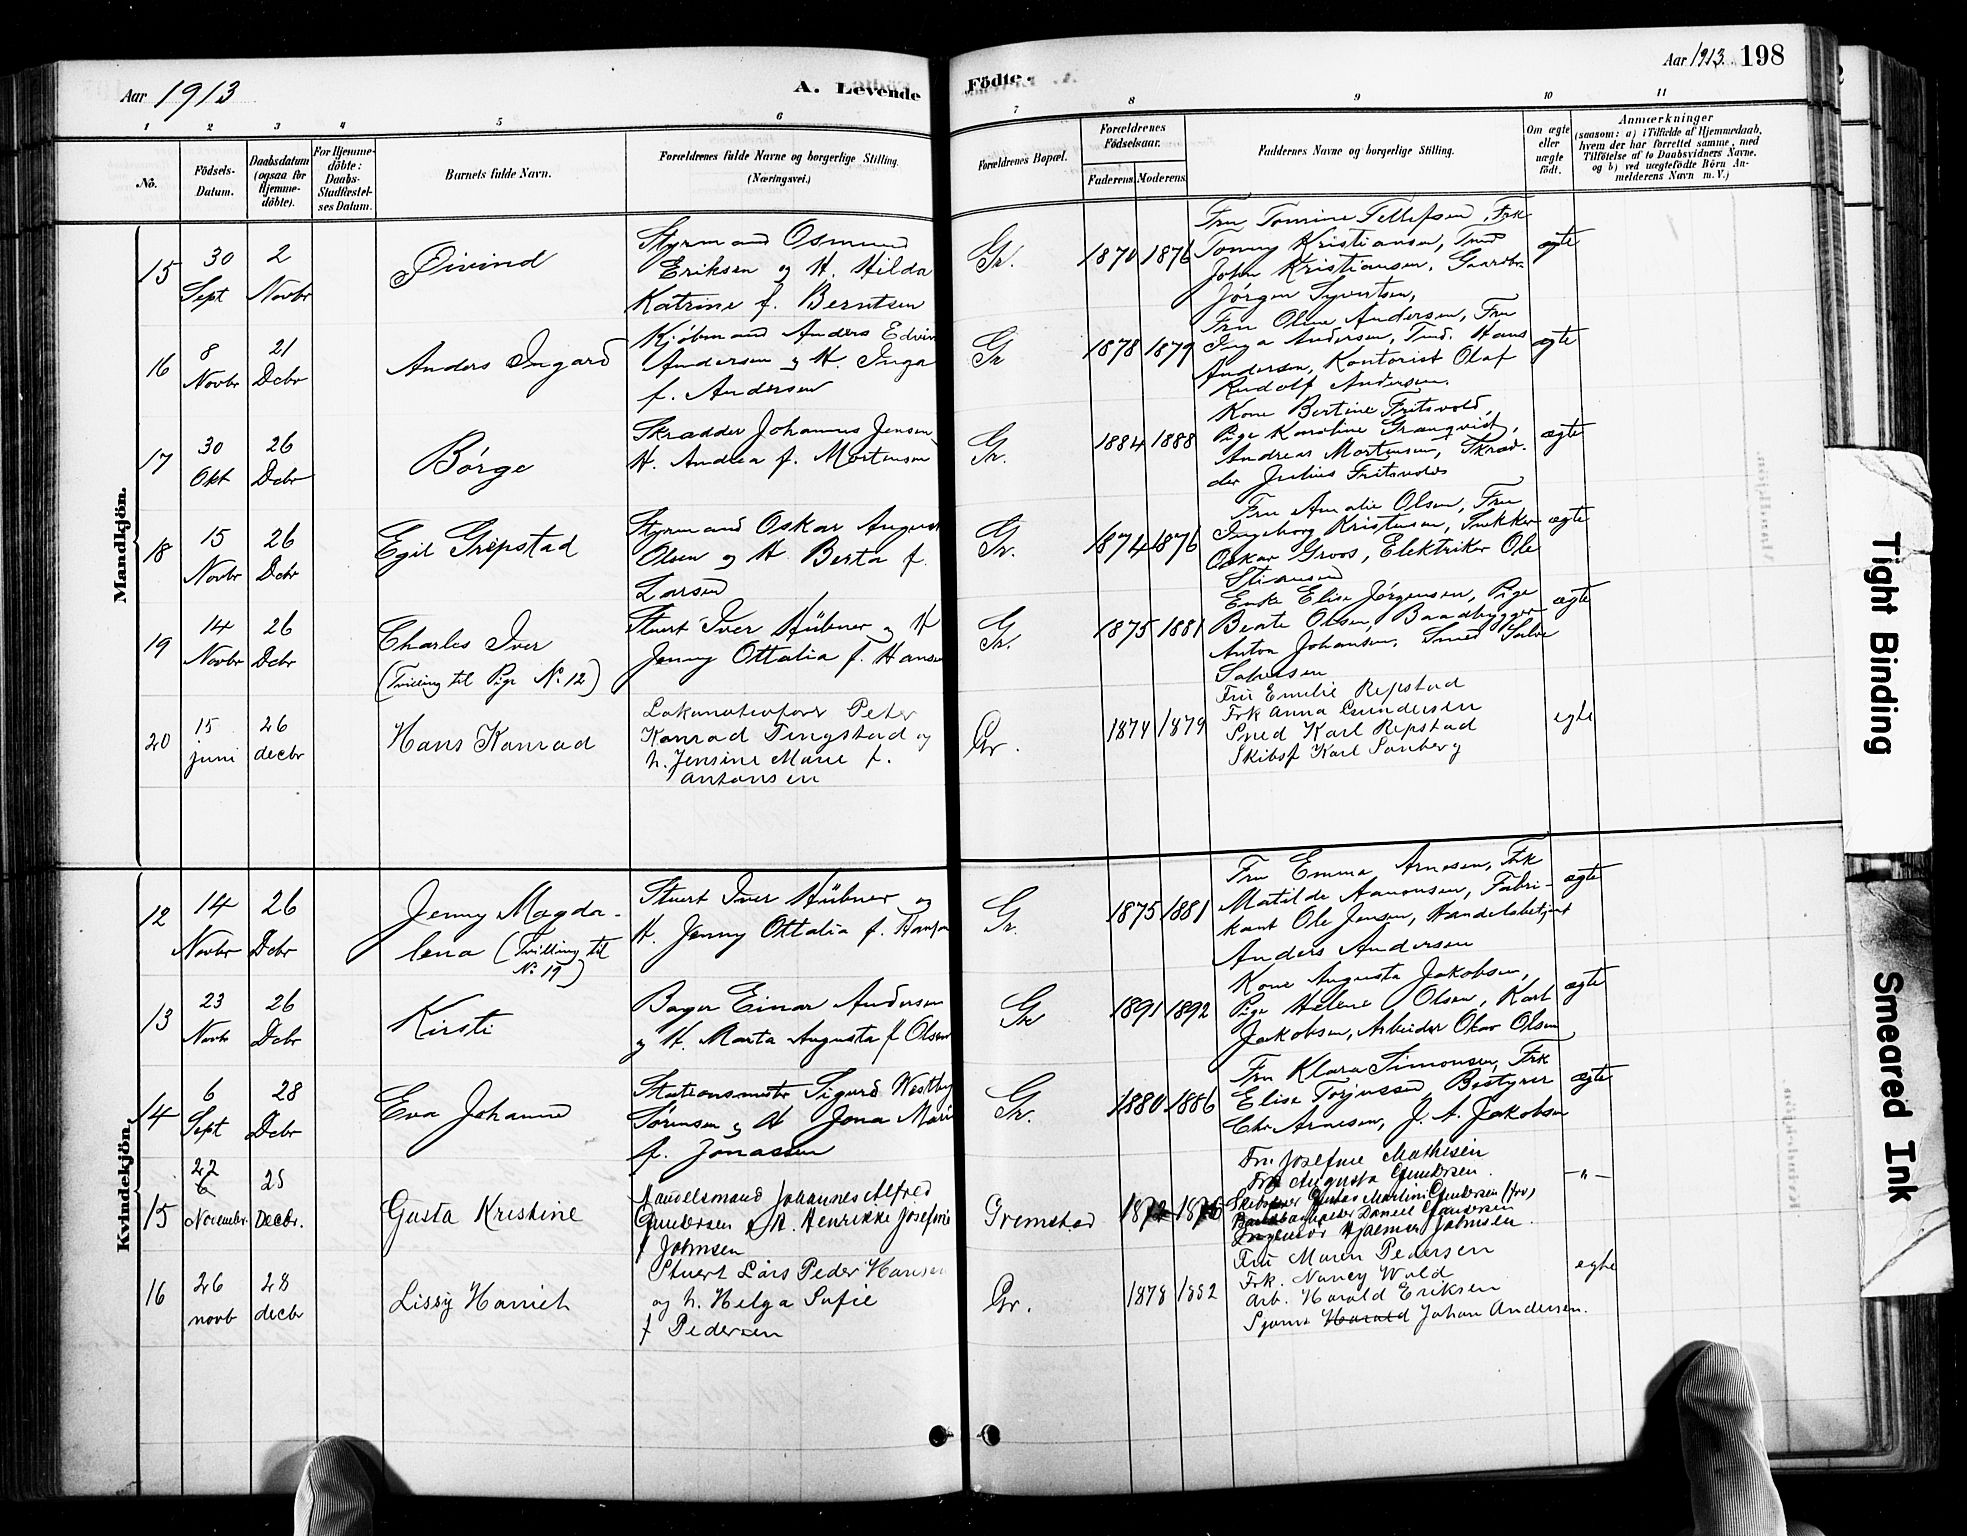 Aar 1913
A. Levende
Födte.
Aar 1913. 198
1 2 3 4 5 6 7 8 9 10 11
Nö.
Födsels-
Datum.
Daabsdatum
(ogsaa for
Hjemme-
döbte).
For Hjemme-
döbte:
Daabs-
Stadfæstel-
ses Datum.
Barnets fulde Navn.
Forældrenes fulde Navne og borgerlige Stilling.
(Næringsvei.)
Forældrenes Bopæl.
Forældrenes
Födselsaar.
Faderens. Moderens.
Faddernes Navne og borgerlige Stilling.
Om ægte
eller
uægte
födt.
Anmærkninger
(saasom: a) i Tilfælde af Hjemmedaab,
hvem der har forrettet samme, med
Tilföielse af to Daabsvidners Navne,
og b) ved uægtefödte Börn An-
melderens Navn m. V.)
Mandkjön.
15
30 Sept
2 Novbr
Øivind
Styrmand Osmund
Eriksen og H. Hilda
Katrine f. Berntsen
Gr.
1870 1876
Fru Tomine Tellefsen, Frk
Tonny Kristiansen, Tmd
John Kristiansen, Gaardbr.
Jørgen Syvertsen,
ægte
16
8 Novbr
21 Dcbr
Anders Ingard
Kjøbmand Anders Edvin
Andersen og H. Inga
f. Andersen
Gr
1878 1879
Fru Oline Andersen, Fru
Inga Andersen, Tmd. Hans
Andersen, Kontorist Olaf
Rudolf Andersen.
ægte
17
30 Okt
26 Dcbr
Børge
Skrædder Johannes Jensen,
H. Andrea f. Mortensen
Gr.
1884 1888
Kone Bertine Fritsvold,
Pige Karoline Granqvist,
Andreas Mortensen, Skræd-
der Julius Fritsvold
ægte
18
15 Novbr
26 Dcbr
Egil Gripstad
Styrmand Oskar August
Olsen og H. Berta f.
Larsen
Gr.
1874 1876
Fru Amalie Olsen, Fru
Ingeborg Kristensen, Snekker
Oskar Groos, Elektriker Ole
ægte
19
14 Novbr
26 Dcbr
Charles Iver
(Tvilling til Pige No 12)
Stuert Iver Hübner og H
Jenny Ottalia f. Hansen
Gr.
1875 1881
Enke Elise Jørgensen, Pige
Beate Olsen, Baadbygger
Anton Johansen, Smed Salve
Salvesen
ægte
20
15 juni
26 decbr
Hans Konrad
Lokomotivfører Peter
Konrad Tingstad og
h. Jensine Marie f.
Antonsen
Gr.
1874 1879
Fru Emilie Repstad
Frk Anna Gundersen
Smed Karl Repstad
Skibsf Karl Sonberg
egte
Kvindekjön.
12
14 Novbr
26 Dcbr
Jenny Magda-
lena (Tvilling til
No 19)
Stuert Iver Hübner og
H. Jenny Ottalia f. Hansen
Gr.
1875 1881
Fru Emma Arnesen, Frk
Matilde Aanonsen, Fabri-
kant Ole Jensen, Handelsbetjent
Anders Andersen
ægte
13
23 Novbr
26 Dcbr
Kirsti
Bager Einar Andersen
og H. Marta Augusta f Olsen
Gr
1891 1892
Kone Augusta Jakobsen,
Pige Helene Olsen, Karl
Jakobsen, Arbeider Oskar Olsen
ægte
14
6 Sept
28 Dcbr
Eva Johanne
Stationsmester Sigurd Westby
Sørensen og H Jona Marie
f. Jonassen
Gr.
1880 1886
Fru Klara Simonsen, Frk
Elise Torjussen, Bestyrer
Chr Arnesen, J. A. Jakobsen
ægte
15
22 November
25 Decbr.
Gusta Kristine
Handelsmand Johannes Alfred
Gundersen og H. Henrikke Josefine
f Johnsen
Gremstad
Fru Josefine Mathisen
Frk Augusta Gundersen.
Skibsfører Gustav Martin Gundersen
Ingeniør Hjalmer Johnsen.
-"-
16
26 novb
28 decbr
Lissy Harriet
Stuert Lars Peder Hansen
og h. Helga Sofie
f Pedersen
Gr.
1878 1882
Fru Maren Pedersen
Frk. Nancy Wold
Arb. Harald Eriksen
Sjømd Harald Johan Andersen.
egte
Tight Binding
Smeared Ink